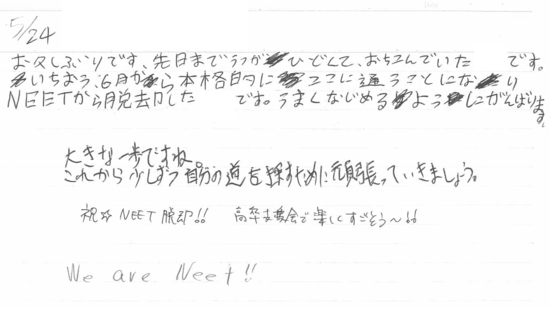 5/24
お久しぶりです、先日までうつがひどくて、おちこんでいた です。
いちおう、6月から本格的にここに通うことになり
NEETから脱却した です。うまくなじめるようにがんばります
大きな一歩ですね。
これから少しずつ自分の道を探すために頑張っていきましょう。
祝☆NEET脱却!! 高卒支援会で楽しくすごそう〜!!
We are Neet!!